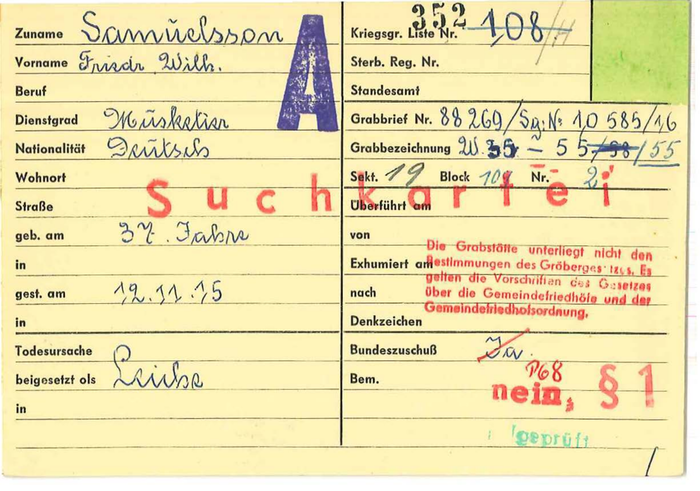 Zuname Samuelsson
Vorname Friedr. Wilh.
Beruf
Dienstgrad Musketier
Nationalität Deutsch
Wohnort
Straße
geb. am 37. Jahre
in
gest. am 12.11.15
in
Todesursache
beigesetzt als Leiche
in
A
Suchkartei
352
Kriegsgr. Liste Nr. 108
Sterb. Reg. Nr.
Standesamt
Grabbrief Nr. 88269/Sg: No 10585/16
Grabbezeichnung W. 35 - 55/98/55
Sekt. 19 Block 109 Nr. 2
Überführt am
von
Exhumiert am
nach
Denkzeichen
Die Grabstätte unterliegt nicht den
Bestimmungen des Gräbergesetzes. Es
gelten die Vorschriften des Gesetzes
über die Gemeindefriedhöfe und der
Gemeindefriedhofsordnung.
Bundeszuschuß Ja.
Bem. P68
nein, § 1
geprüft